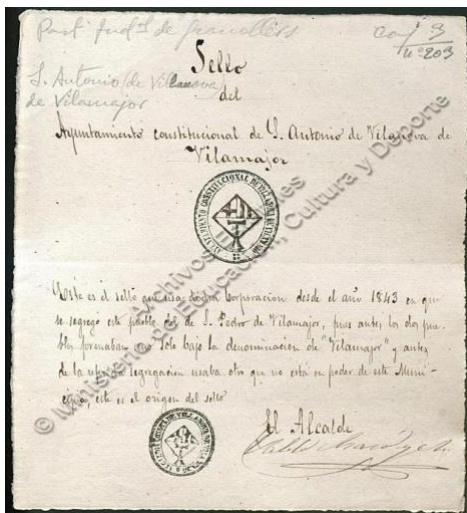 Part. Jud.l de Granollers
Caj. 3
nº 203
S. Antonio (de Vilanova)
de Vilamajor
Sello
del
Ayuntamiento constitucional de S. Antonio de Vilanova de
Vilamajor
Este es el sello que usa dicha Corporacion desde el año 1843 en que
se segregó este pueblo del de S. Pedro de Vilamajor, pues antes los dos pue-
blos formaban uno solo bajo la denominacion de "Vilamajor" y antes
de la referida segregacion usaba otro que no está en poder de este Muni-
cipio, este es el origen del sello
El Alcalde
© Ministerio de Educación, Cultura y Deporte
Archivos Estatales